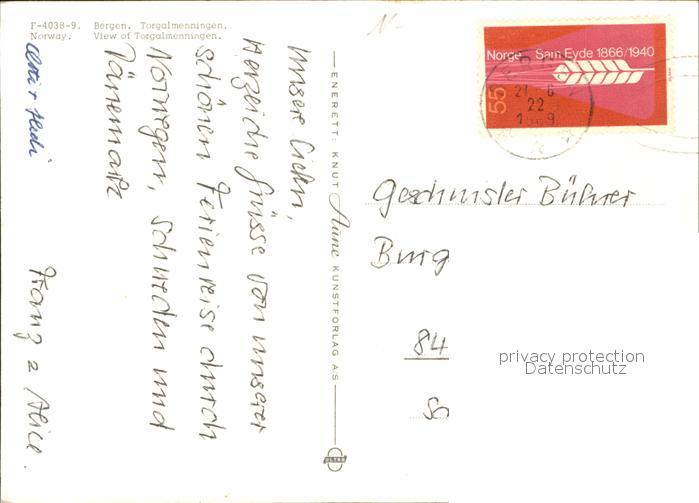 F-4038-9. Bergen. Torgalmenningen.
Norway. View of Torgalmenningen.
Unsere Lieben,
Herzliche Grüsse von unserer
schönen Ferienreise durch
Norwegen, Schweden und
Dänemark
Franz & Alice.
Heidi
ENERETT: KNUT Aune KUNSTFORLAG A/S
ULTRA
Norge Sam Eyde 1866/1940
55
21 6
22
Geschwister Bühner
Burg
84
Sc
privacy protection
Datenschutz